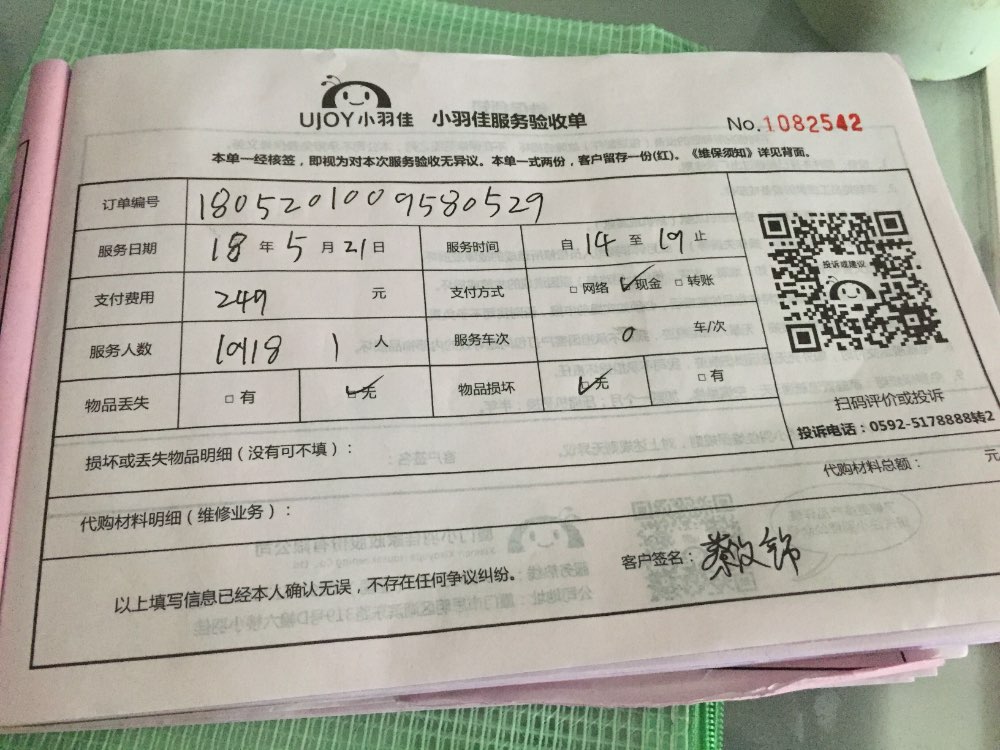 UJOY小羽佳 小羽佳服务验收单 No.1082542
本单一经核签，即视为对本次服务验收无异议。本单一式两份，客户留存一份(红)。《维保须知》详见背面。
订单编号 180520100 9580529
服务日期 18 年 5 月 21 日 服务时间 自 14 至 19 止
支付费用 249 元 支付方式 □网络 ☑现金 □转账
服务人数 1918 1 人 服务车次 0 车/次
物品丢失 □有 ☑无 物品损坏 ☑无 □有
投诉或建议
扫码评价或投诉
投诉电话：0592-5178888转2
损坏或丢失物品明细（没有可不填）：
代购材料明细（维修业务）： 代购材料总额： 元
以上填写信息已经本人确认无误，不存在任何争议纠纷。 客户签名：